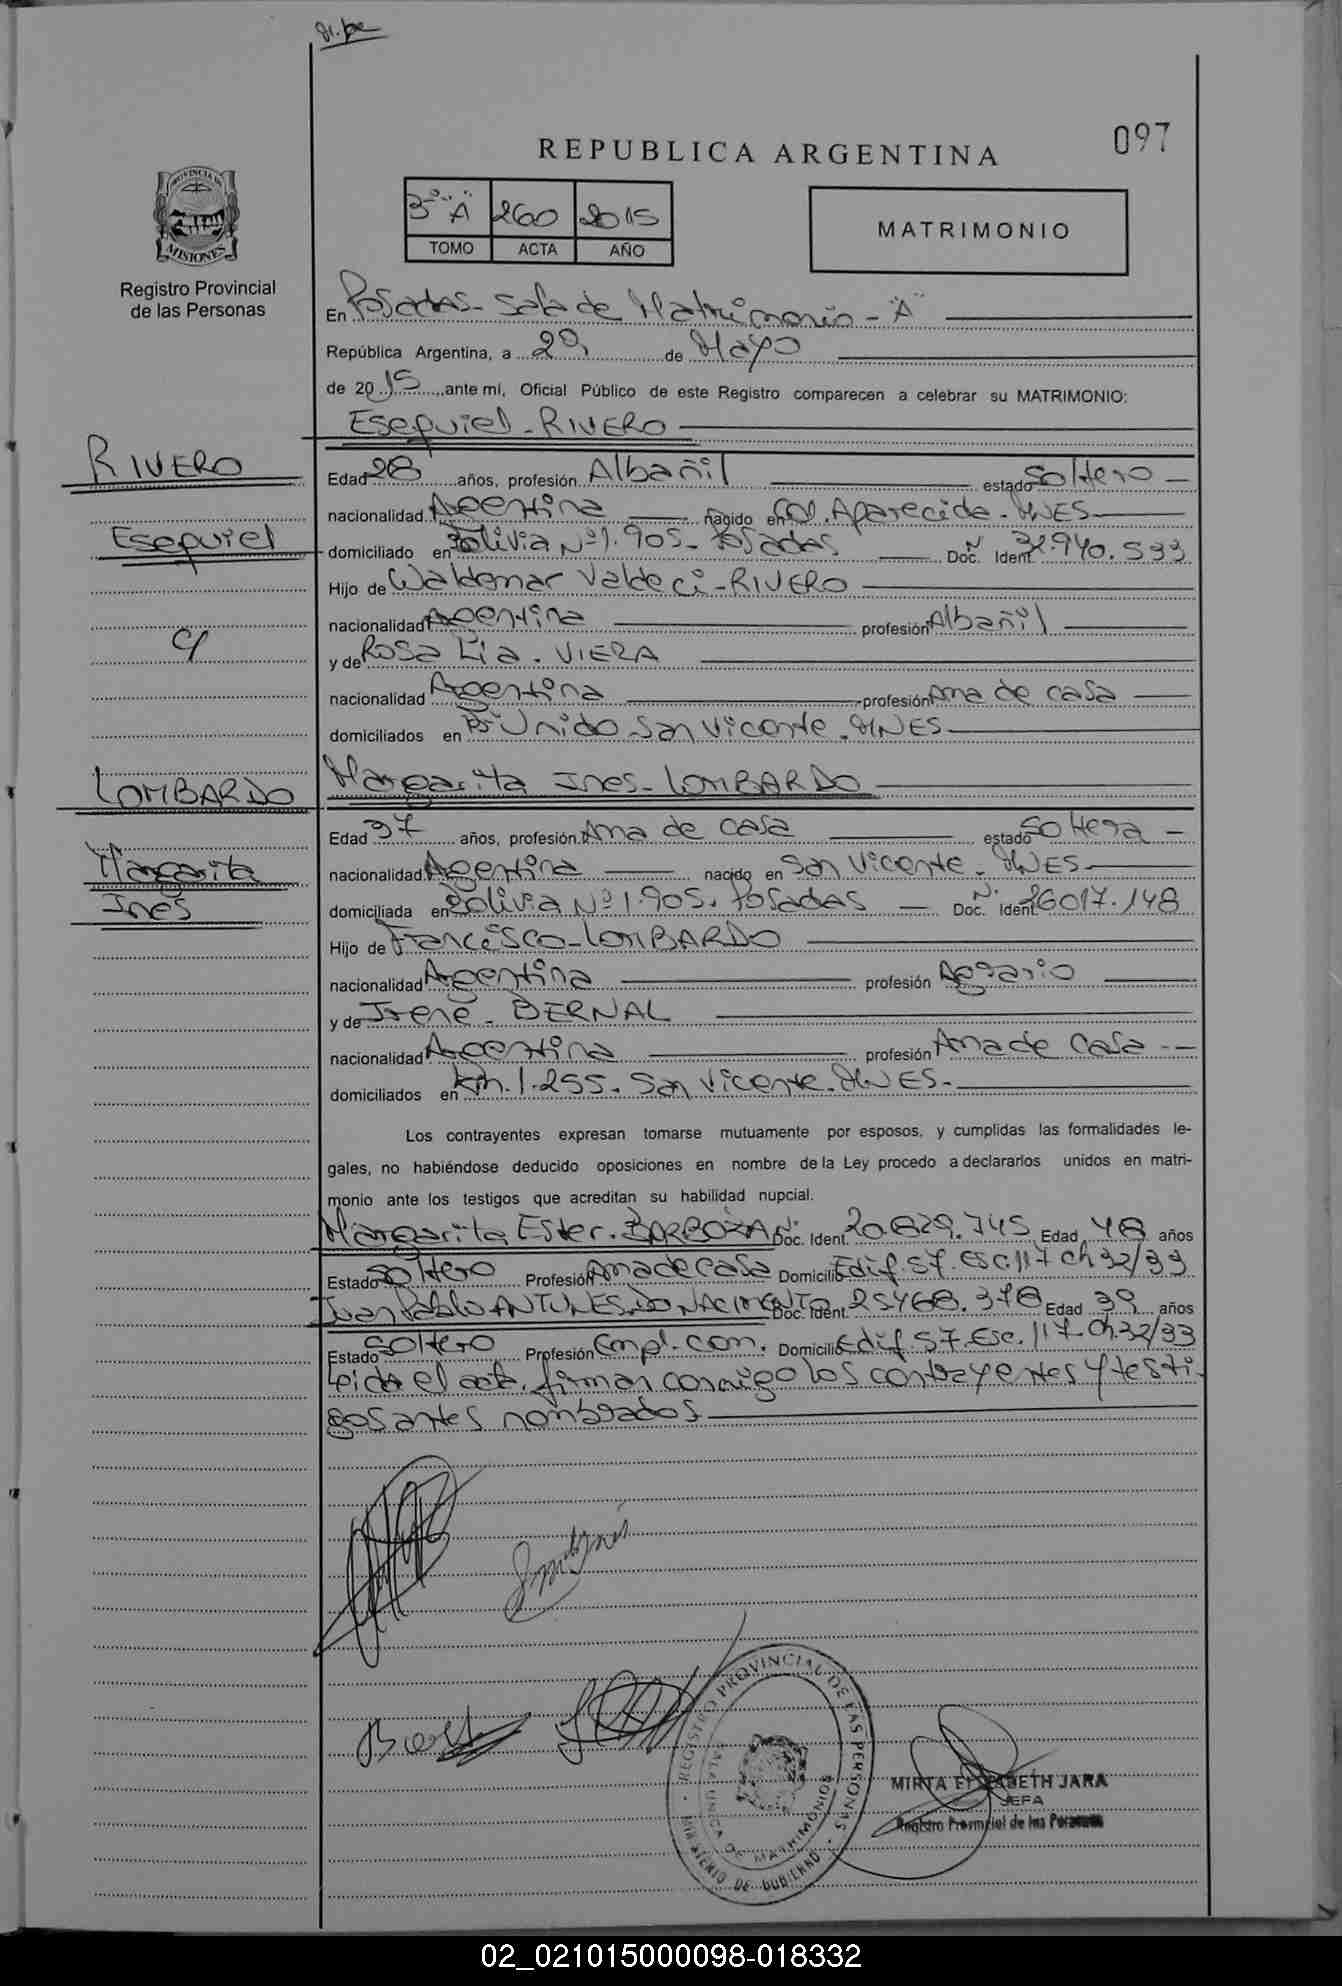 097
REPUBLICA ARGENTINA
3º "A" 260 2015
TOMO ACTA AÑO
MATRIMONIO
PROVINCIA DE
MISIONES
Registro Provincial
de las Personas
En Posadas - Sala de Matrimonio - "A"
República Argentina, a 29 de Mayo
de 2015 ante mí, Oficial Público de este Registro comparecen a celebrar su MATRIMONIO:
Esequiel - RIVERO
RIVERO
Edad 28 años, profesión Albañil estado Soltero
nacionalidad Argentina nacido en Col. Aparecida - MNES
Esequiel
domiciliado en Bolivia Nº 1.905 - Posadas Doc. Ident. Nº 32.940.533
Hijo de Waldemar Valdeci - RIVERO
nacionalidad Argentina profesión Albañil
c/
y de Rosa Lia - VIERA
nacionalidad Argentina profesión Ama de casa
domiciliados en Bº Unido San Vicente - MNES
LOMBARDO
Margarita Ines - LOMBARDO
Edad 37 años, profesión Ama de casa estado Soltera
Margarita
nacionalidad Argentina nacido en San Vicente - MNES
Ines
domiciliada en Bolivia Nº 1.905 - Posadas Doc. Ident. Nº 26017.148
Hijo de Francisco - LOMBARDO
nacionalidad Argentina profesión Agrario
y de Irene - BERNAL
nacionalidad Argentina profesión Ama de casa
domiciliados en Km. 1.255 - San Vicente - MNES -
Los contrayentes expresan tomarse mutuamente por esposos, y cumplidas las formalidades le-
gales, no habiéndose deducido oposiciones en nombre de la Ley procedo a declararlos unidos en matri-
monio ante los testigos que acreditan su habilidad nupcial.
Margarita Ester - BARBOZA Doc. Ident. Nº 20.829.745 Edad 48 años
Estado Soltero Profesión Ama de casa Domicilio Edif. 57 - Esc. 117 Ch 32/33
Juan Pablo ANTUNES DO NACIMENTO Doc. Ident. 25468.378 Edad 39 años
Estado Soltero Profesión Empl. com. Domicilio Edif. 57 - Esc. 117 - Ch. 32/33
Leida el acta, firman conmigo los contrayentes y testi-
gos antes nombrados
REGISTRO PROVINCIAL DE LAS PERSONAS
SALA UNICA DE MATRIMONIOS
MINISTERIO DE GOBIERNO
MIRTA ELIZABETH JARA
JEFA
Registro Provincial de las Personas
02_021015000098-018332